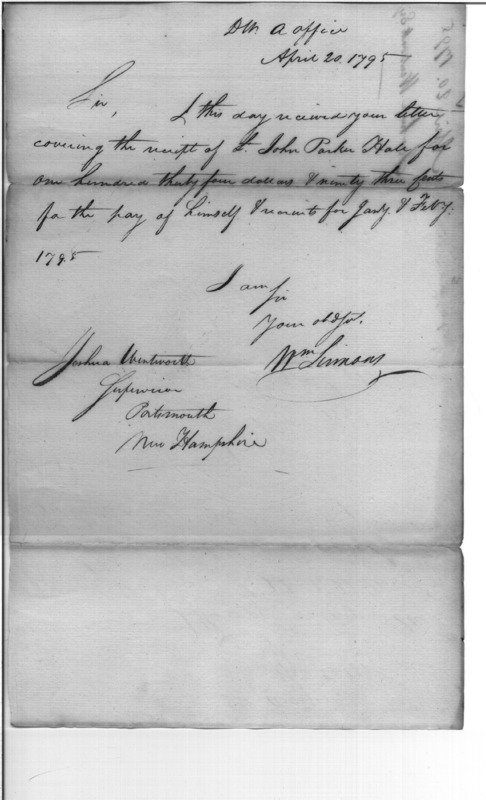 DW. A office
April 20. 1795
Sir,
I this day received your letter
covering the receipt of Lt. John Parker Hale for
one hundred thirty four dollars & ninety three cents
for the pay of himself & recruits for Jany. & Feby.
1795
I am
Sir
Your obd Ser.
Wm Simmons
Joshua Wentworth
Supervisor
Portsmouth
New Hampshire